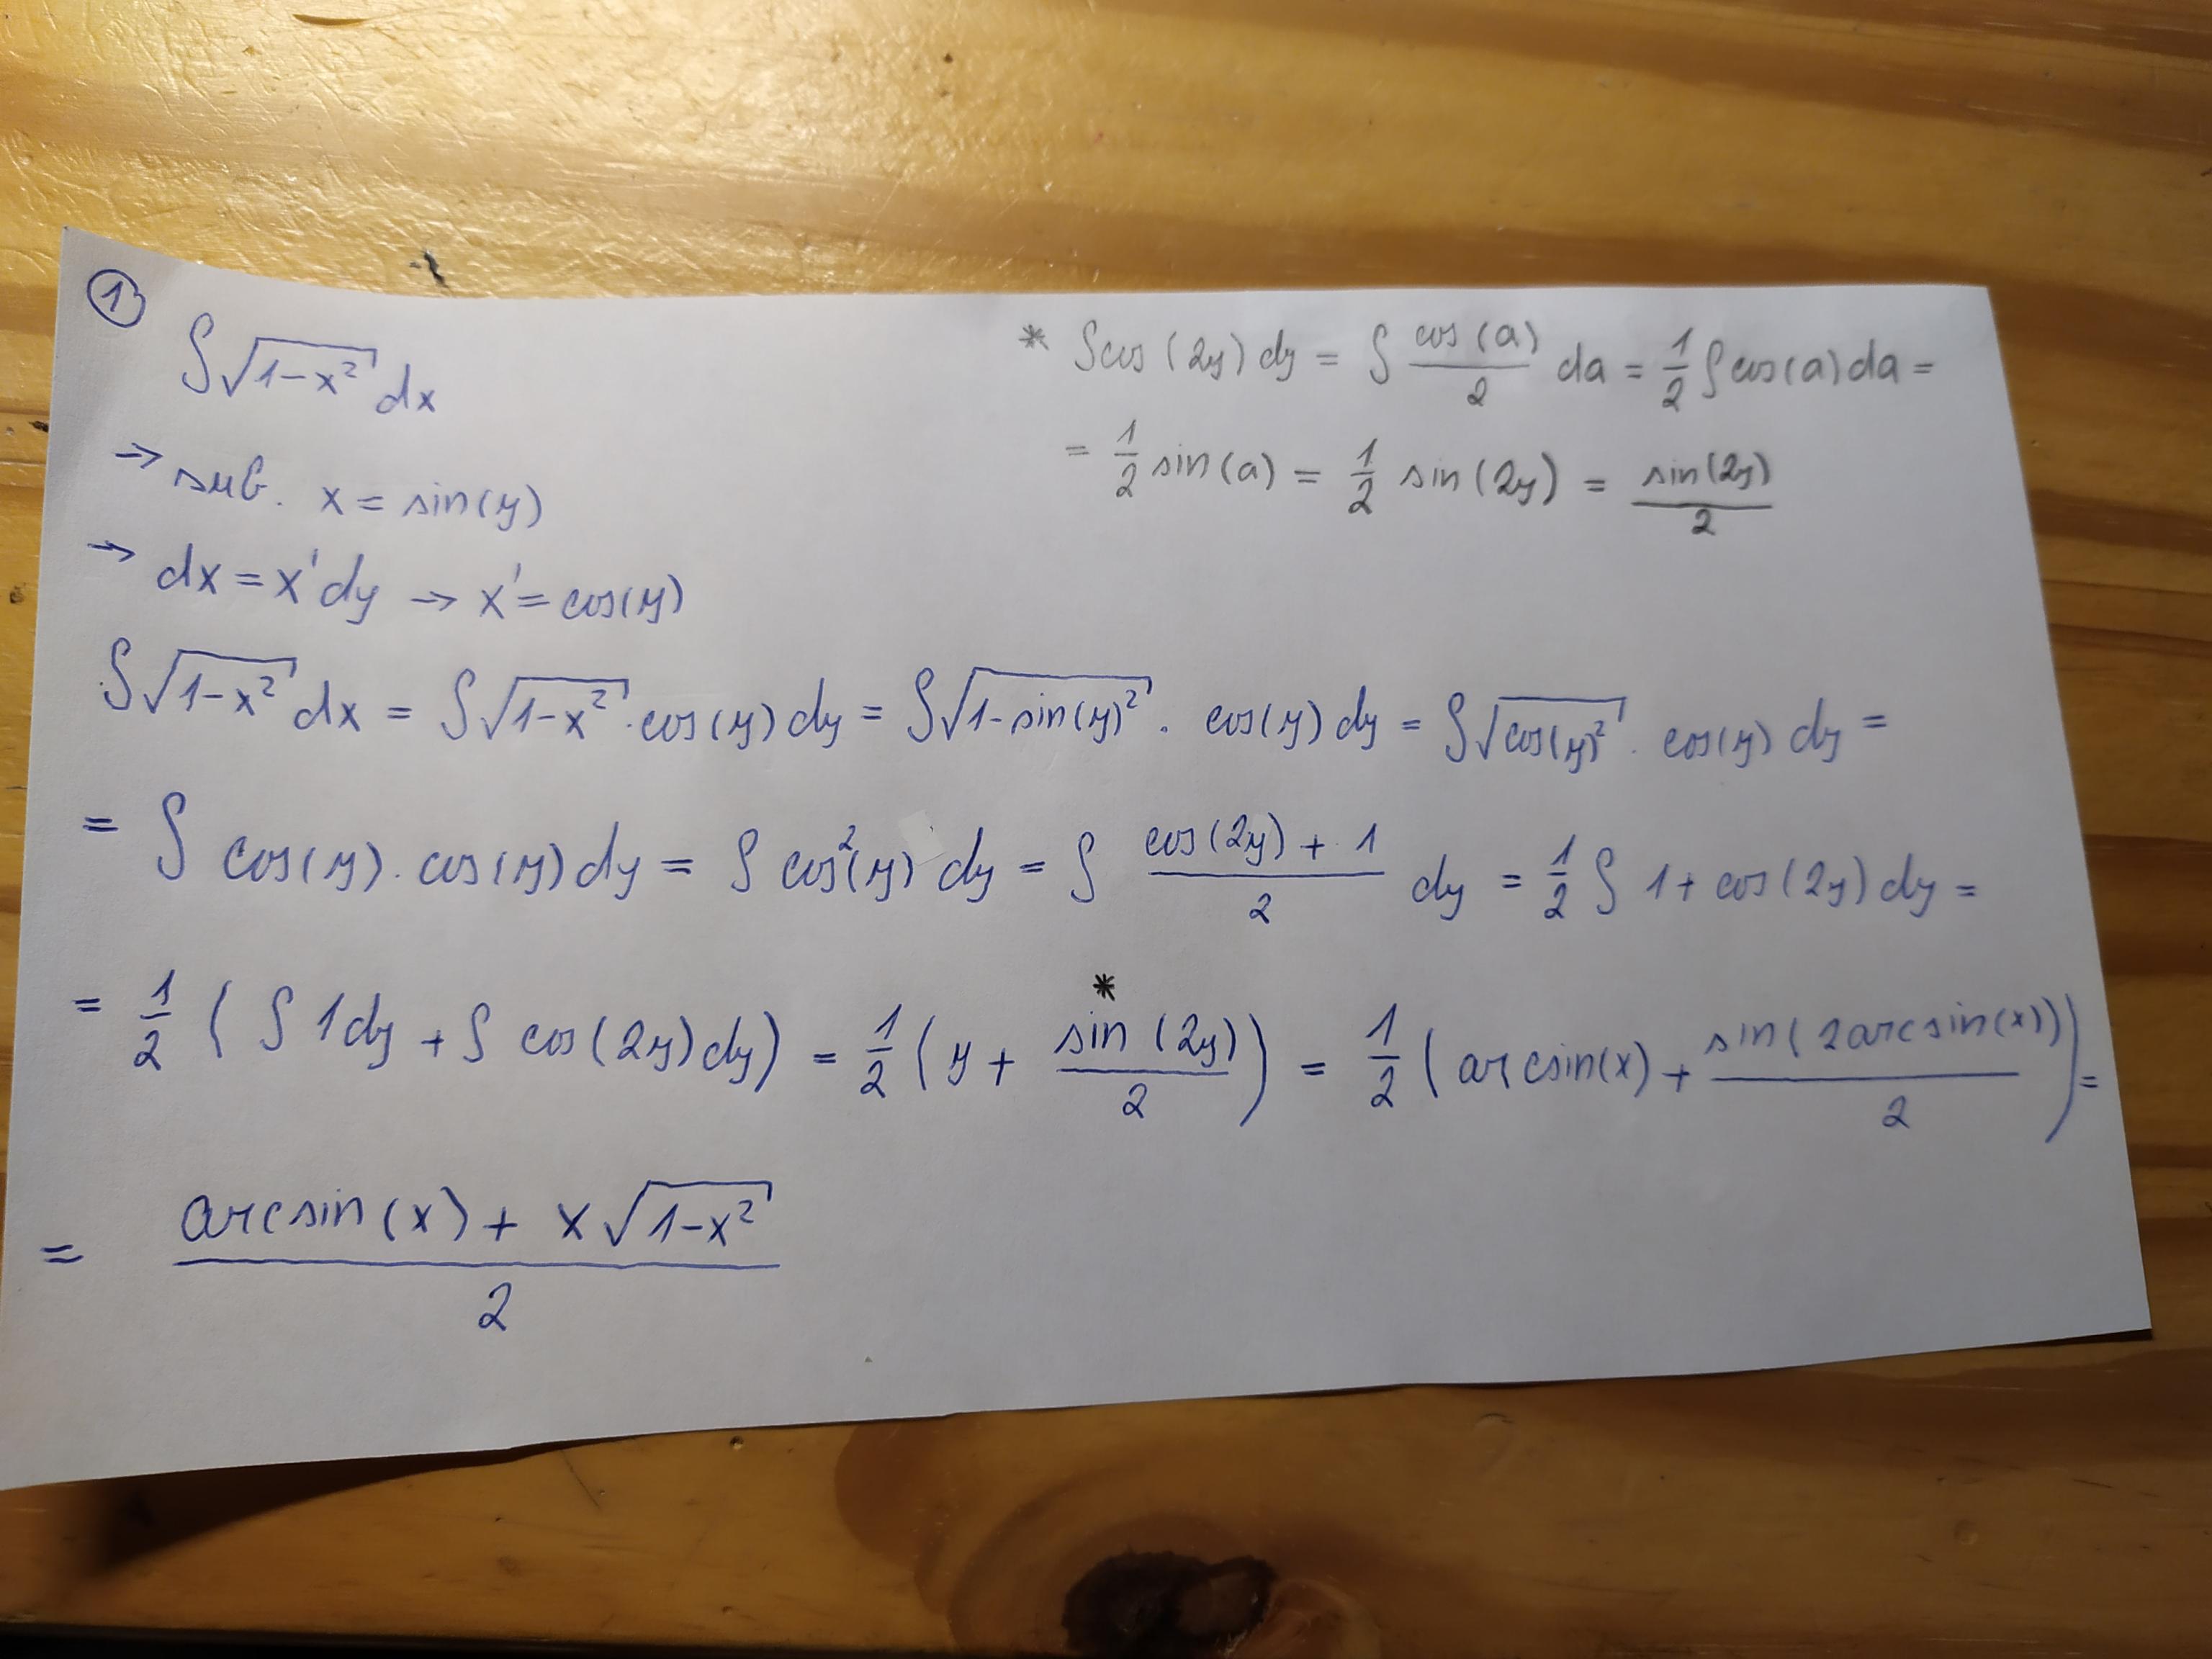 ①
∫√(1-x²) dx
→ sub. x = sin(y)
→ dx = x'dy → x' = cos(y)
* ∫cos(2y) dy = ∫ cos(a)/2 da = 1/2 ∫cos(a) da =
= 1/2 sin(a) = 1/2 sin(2y) = sin(2y)/2
∫√(1-x²) dx = ∫√(1-x²) · cos(y) dy = ∫√(1-sin(y)²) · cos(y) dy = ∫√(cos(y)²) · cos(y) dy =
= ∫ cos(y) · cos(y) dy = ∫ cos²(y) dy = ∫ (cos(2y) + 1)/2 dy = 1/2 ∫ 1 + cos(2y) dy =
= 1/2 (∫ 1dy + ∫ cos(2y) dy) = 1/2 (y + * sin(2y)/2) = 1/2 (arcsin(x) + sin(2arcsin(x))/2) =
= (arcsin(x) + x√(1-x²))/2